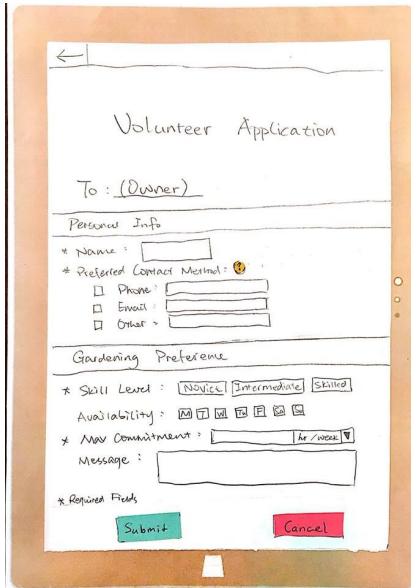 Volunteer Application
To : (Owner)
Personal Info
* Name :
* Preferred Contact Method : ?
Phone :
Email :
Other :
Gardening Preference
* Skill Level : Novice Intermediate Skilled
Availability : M T W Th F Sa Su
* Max Commitment : hr / week
Message :
* Required Fields
Submit Cancel